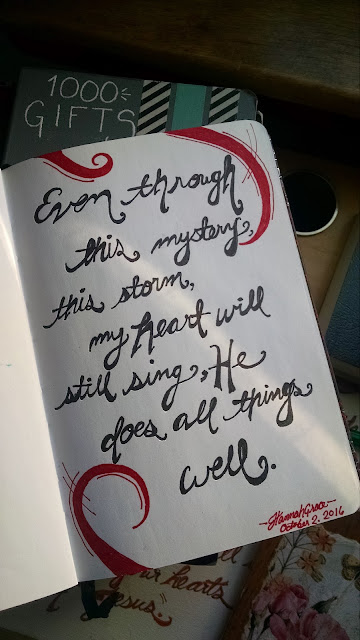 1000
GIFTS
Even through
this mystery,
this storm,
my heart will
still sing, He
does all things
well.
~HannahGrace~
October 2, 2016
your hearts
Jesus"